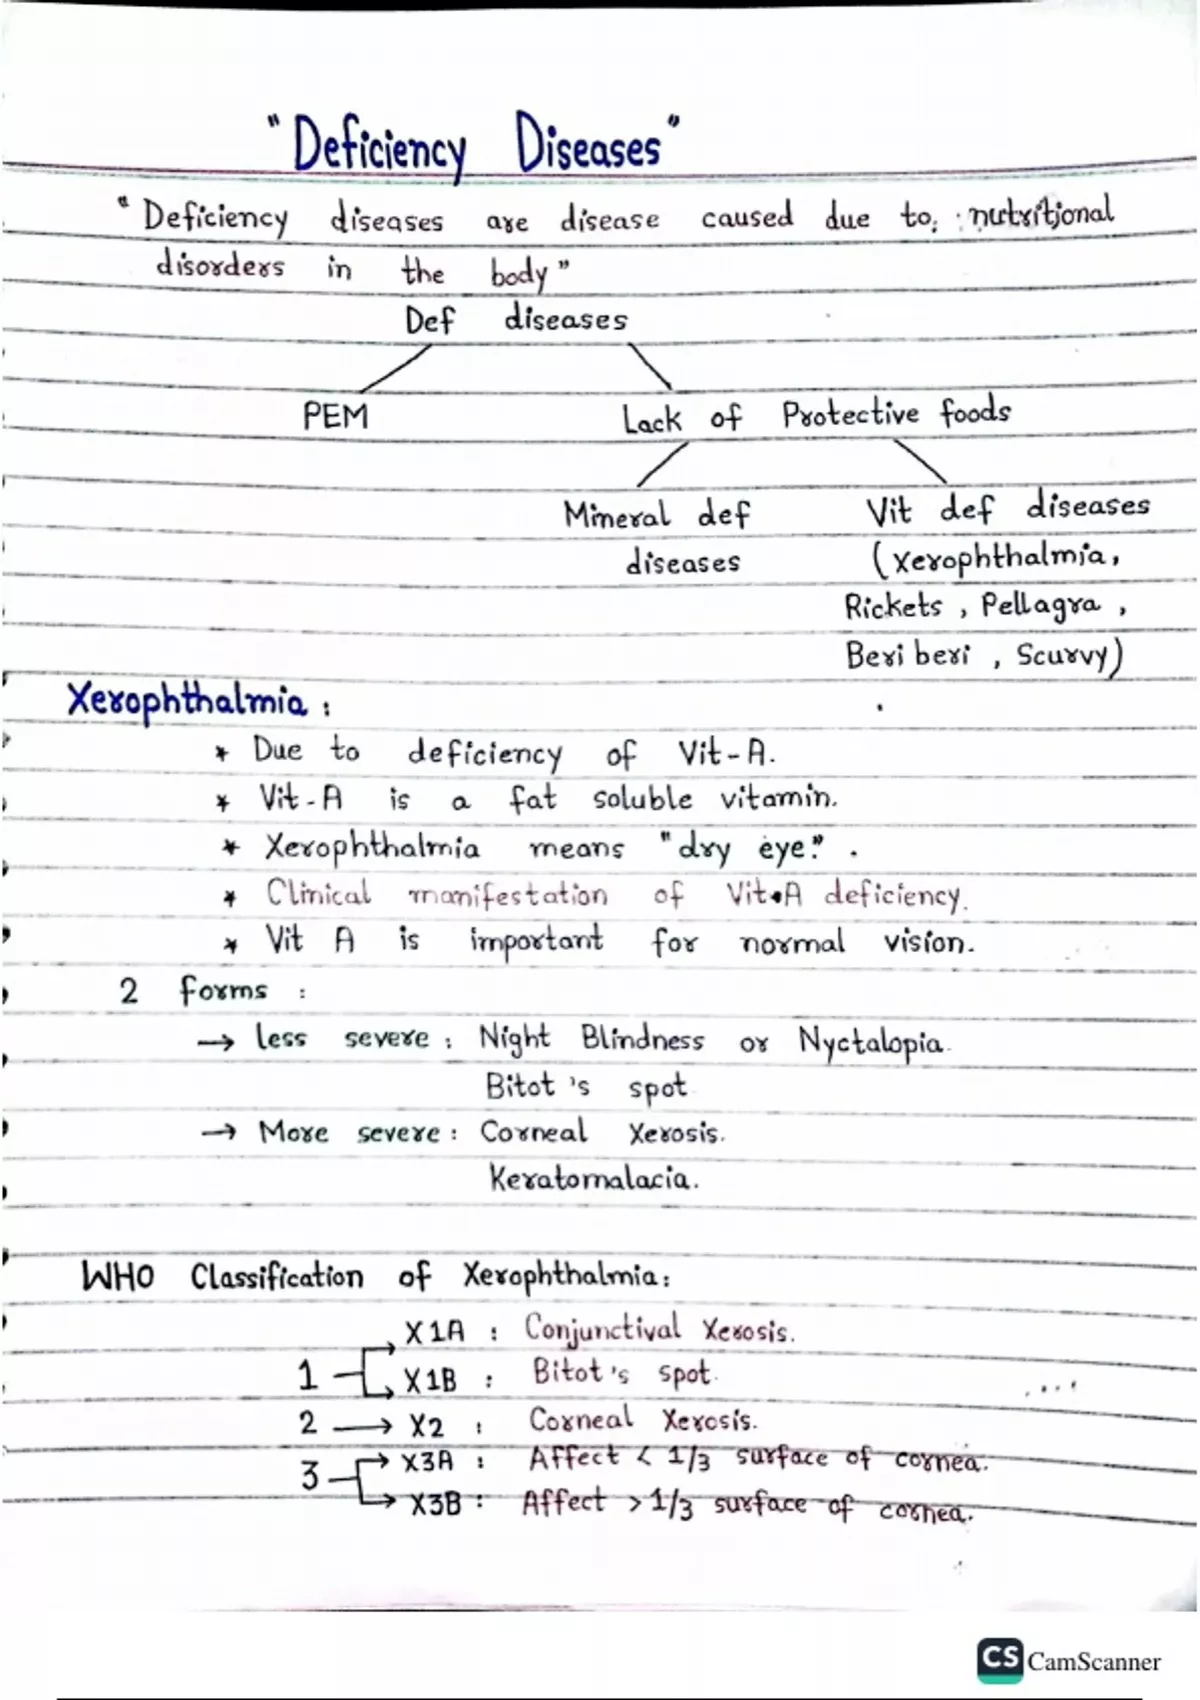 "Deficiency Diseases"
"Deficiency diseases are disease caused due to: nutritional
disorders in the body"
Def diseases
PEM Lack of Protective foods
Mineral def Vit def diseases
diseases (Xerophthalmia,
Rickets, Pellagra,
Beri beri, Scurvy)
Xerophthalmia:
* Due to deficiency of Vit-A.
* Vit-A is a fat soluble vitamin.
* Xerophthalmia means "dry eye".
* Clinical manifestation of Vit-A deficiency.
* Vit A is important for normal vision.
2 forms :
→ less severe : Night Blindness or Nyctalopia.
Bitot's spot
→ More severe : Corneal Xerosis.
Keratomalacia.
WHO Classification of Xerophthalmia:
X1A : Conjunctival Xerosis.
1
X1B : Bitot's spot.
2 → X2 : Corneal Xerosis.
X3A : Affect < 1/3 surface of cornea.
3
X3B : Affect > 1/3 surface of cornea.
CS CamScanner